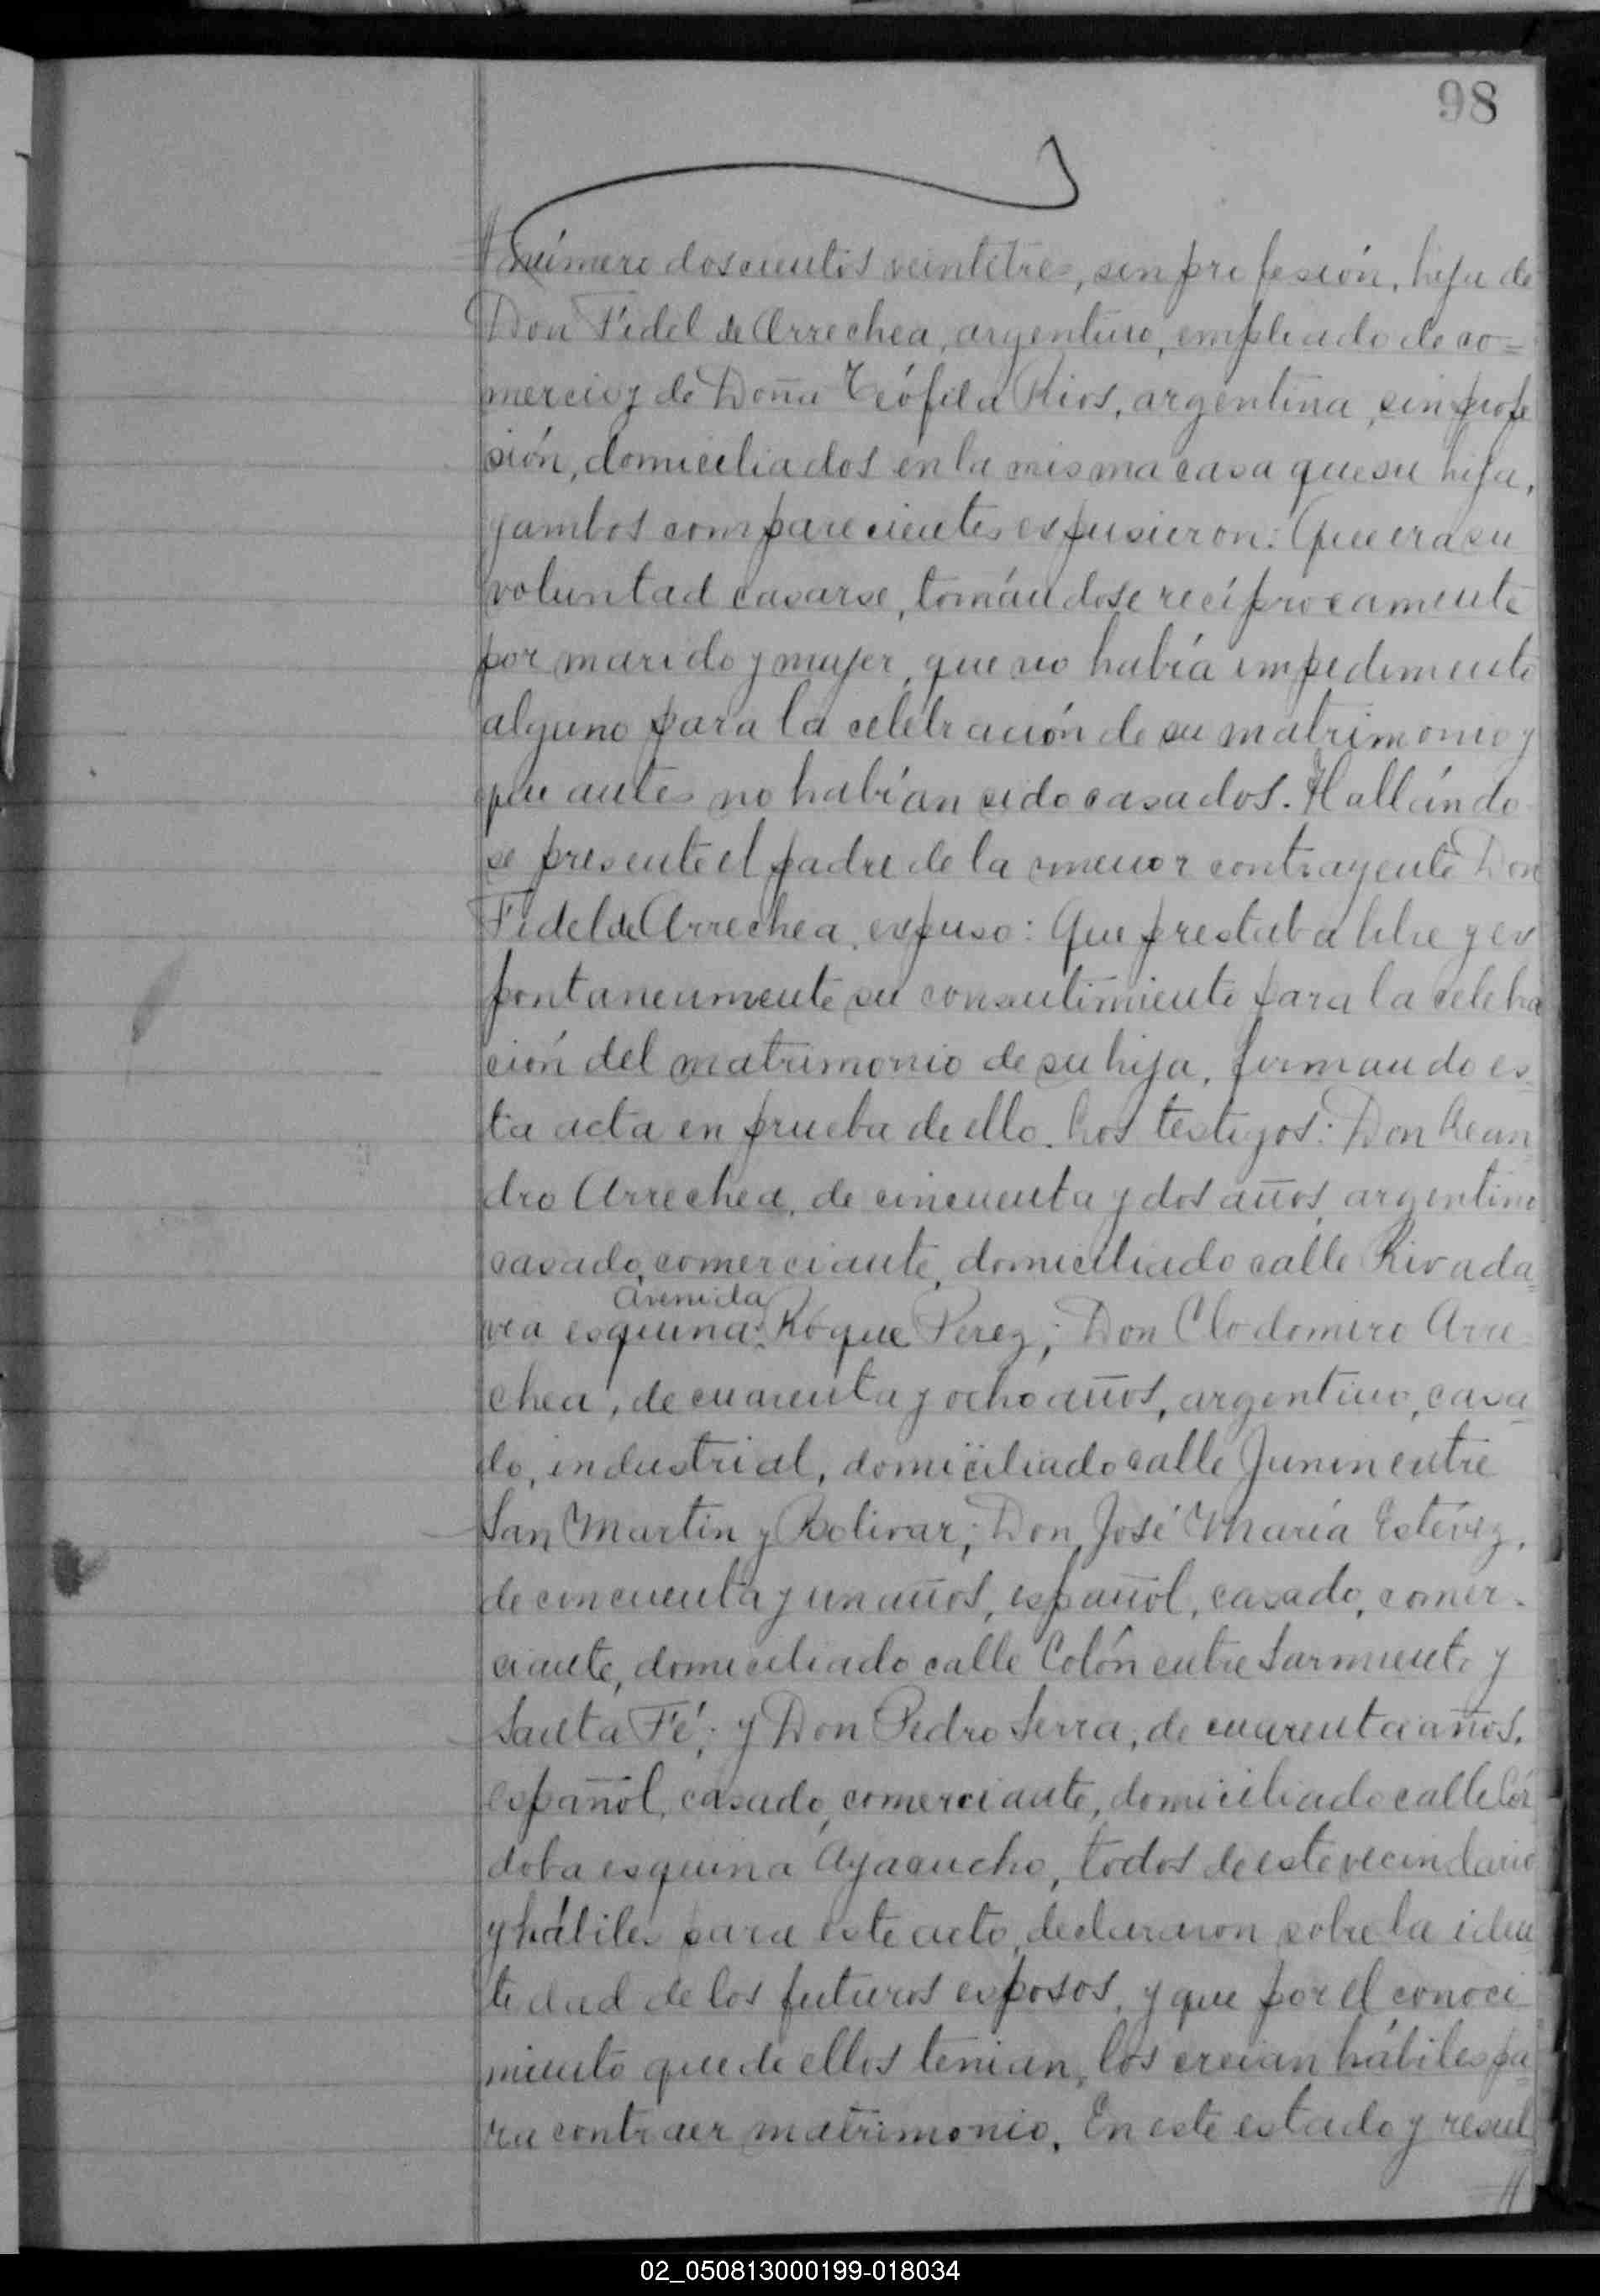 98
número doscientos veintitres, sin profesión, hija de
Don Fidel de Arrechea, argentino, empleado de co=
mercio y de Doña Teófila Rios, argentina, sin profe
sión, domiciliados en la misma casa que su hija,
y ambos comparecientes expusieron: Que era su
voluntad casarse, tomándose recíprocamente
por marido y mujer, que no había impedimento
alguno para la celebración de su matrimonio y
que antes no habían sido casados. Hallándo
se presente el padre de la menor contrayente Don
Fidel de Arrechea, expuso: Que prestaba libre y es
pontaneamente su consentimiento para la celebra
ción del matrimonio de su hija, firmando es-
ta acta en prueba de ello. Los testigos: Don Lean
dro Arrechea, de cincuenta y dos años, argentino
casado, comerciante, domiciliado calle Rivada-
Avenida
via esquina Roque Perez; Don Clodomiro Arre-
chea, de cuarenta y ocho años, argentino, casa-
do, industrial, domiciliado calle Junin entre
San Martin y Bolivar; Don José María Estévez,
de cincuenta y un años, español, casado, comer-
ciante, domiciliado calle Colón entre Sarmiento y
Santa Fé; y Don Pedro Serra, de cuarenta años,
español, casado, comerciante, domiciliado calle Cór
doba esquina Ayacucho, todos de este vecindario
y hábiles para este acto, declararon sobre la iden
tidad de los futuros esposos, y que por el conoci
miento que de ellos tenian, los creian hábiles pa-
ra contraer matrimonio. En este estado y resul
02_050813000199-018034